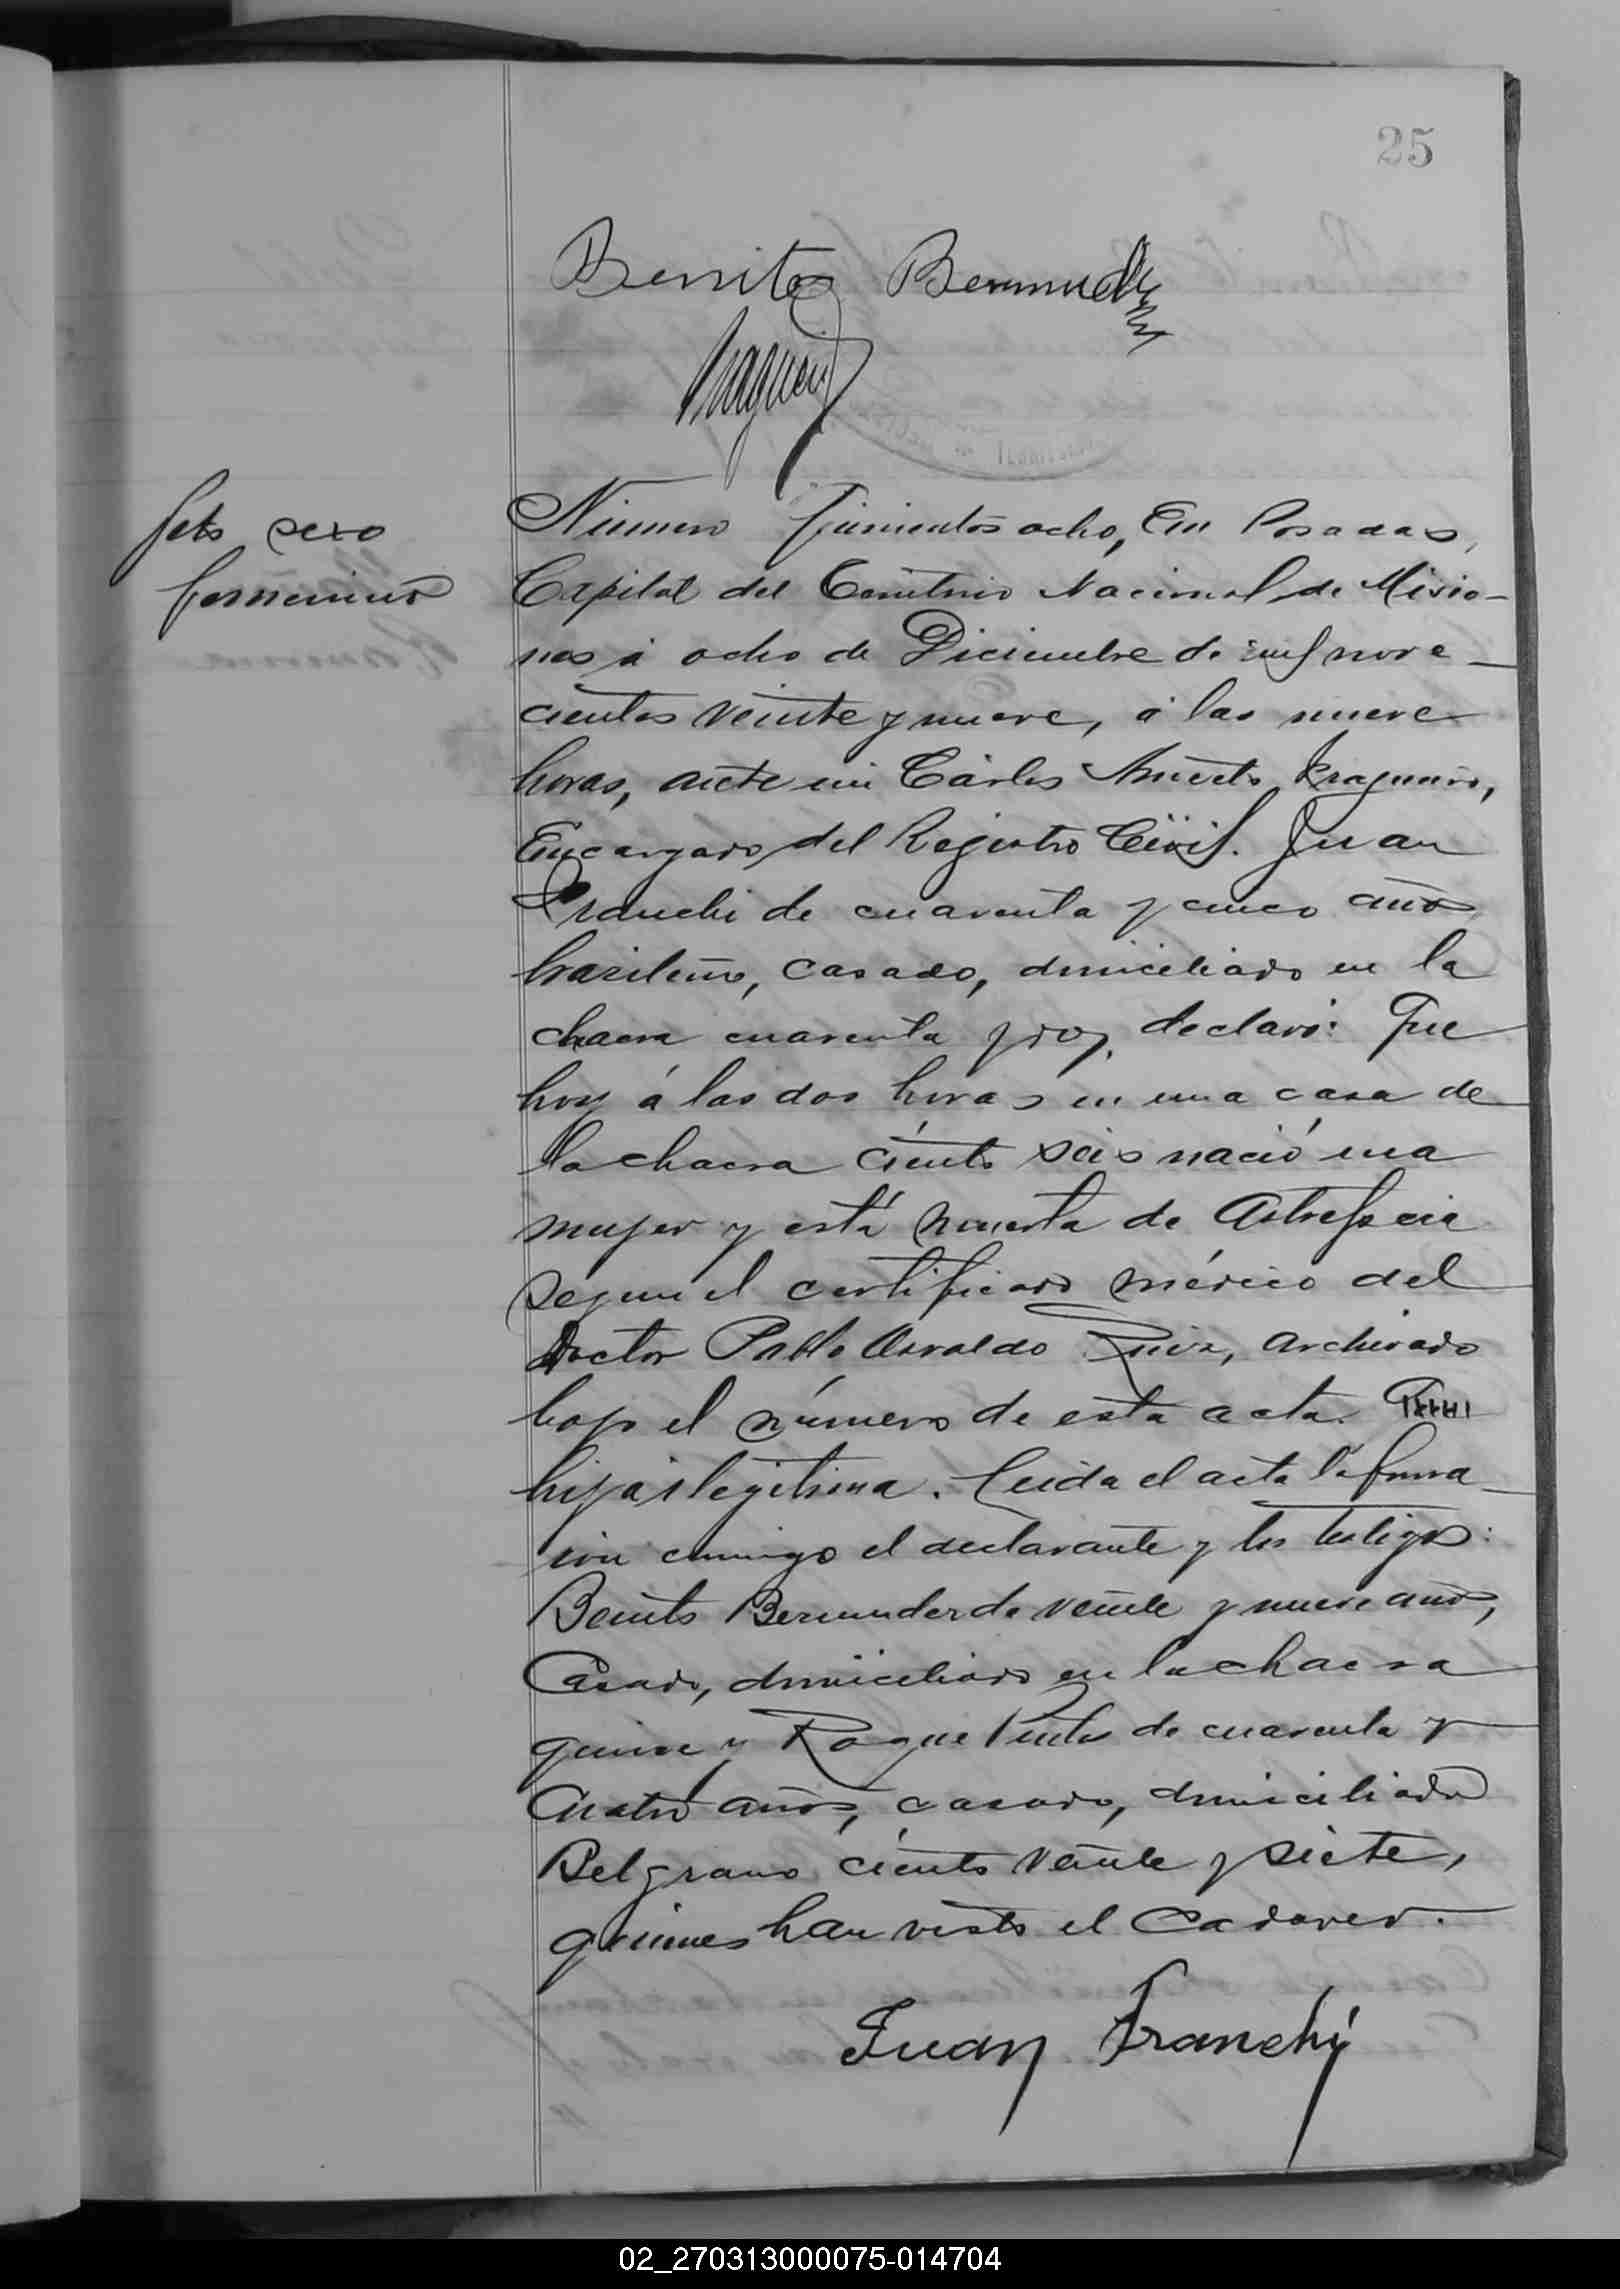 25
Benito Bermudez
Feto sexo
femenino
Número quinientos ocho, En Posadas,
Capital del Territorio Nacional de Misio-
nes á ocho de Diciembre de mil nove-
cientos veinte y nueve, á las nueve
horas, ante mi Cárlos
Encargado del Registro Civil. Juan
Franchi de cuarenta y cinco años
brasileño, casado, domiciliado en la
chacra cuarenta y dos, declaró: Que
hoy á las dos horas en una casa de
la chacra ciento seis nació una
mujer y está muerta de
segun el certificado médico del
Doctor Pablo Osvaldo Ruiz, archivado
bajo el número de esta acta.
hija ilegitima. Leida el acta la firma-
ron conmigo el declarante y los testigos:
Benito Bermudez de veinte y nueve años,
Casado, domiciliado en la chacra
quince y Roque Pinto de cuarenta y
cuatro años, casado, domiciliado
Belgrano ciento veinte y siete,
quienes han visto el cadaver.
Juan Franchi
02_270313000075-014704